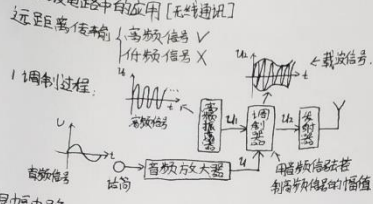 电路中的应用 [无线通讯]
远距离传输 { 高频信号 √
低频信号 ×
1调制过程:
u₁
t
高频信号
u₂
t
载波信号
高频振荡器
u₁
调制器
u₂
发射器
u
t
音频信号
话筒
音频放大器
u
用音频信号去控
制高频信号的幅值